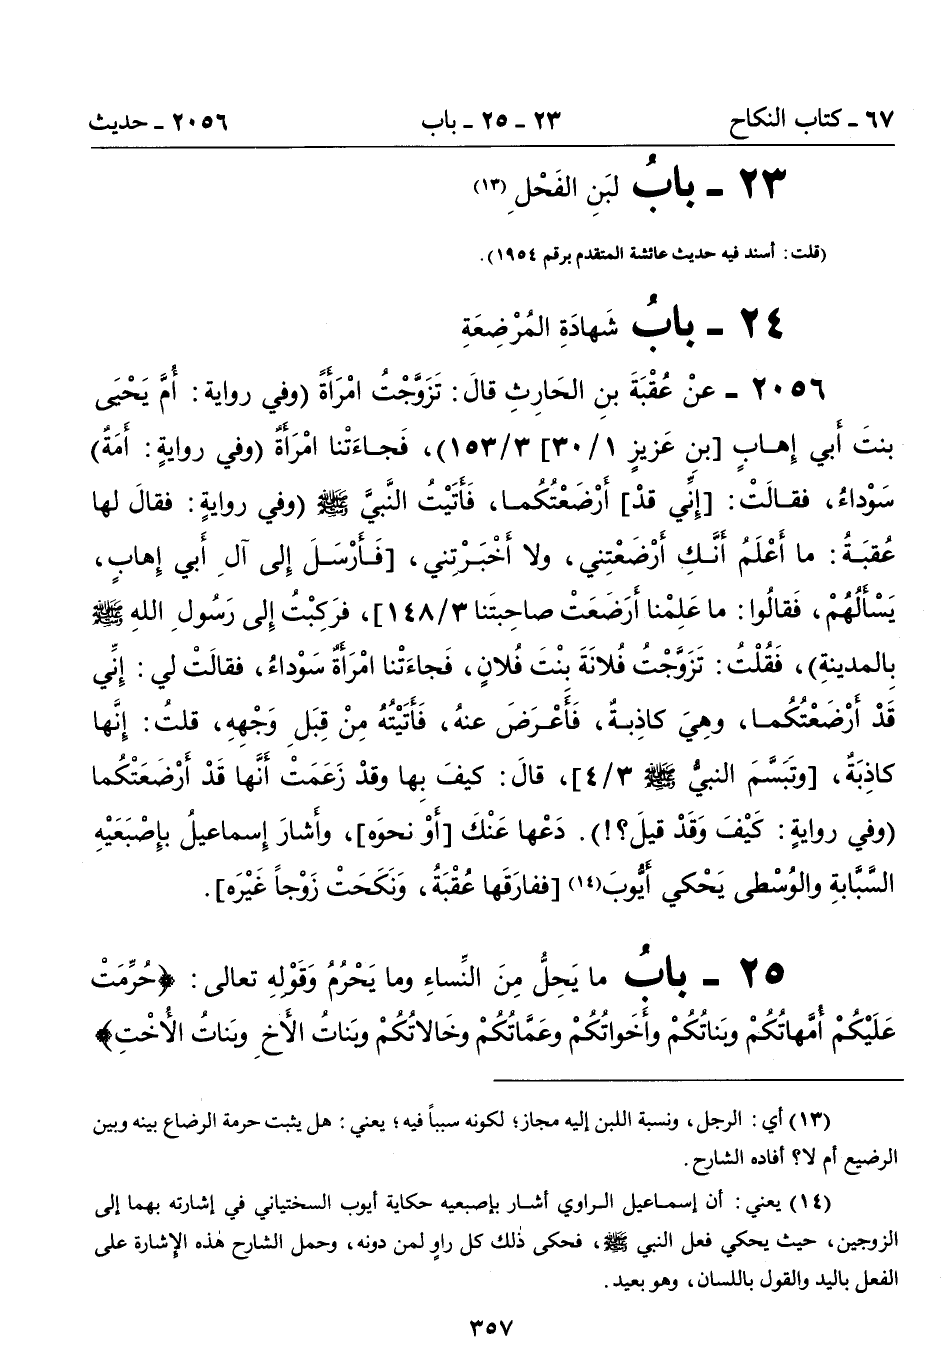 ٦٧ ـ كتاب النكاح ٢٣ ـ ٢٥ ـ باب ٢٠٥٦ ـ حديث
٢٣ ـ بابُ لبَنِ الفَحْلِ (١٣)
(قلت: أسند فيه حديث عائشة المتقدم برقم ١٩٥٤).
٢٤ ـ بابُ شَهادَةِ المُرْضِعَةِ
٢٠٥٦ ـ عنْ عُقْبَةَ بنِ الحَارِثِ قالَ: تَزَوَّجْتُ امْرَأَةً (وفي رواية: أُمَّ يَحْيَى
بنتَ أبي إهـابٍ [بن عَزيزٍ ١/٣٠] ٣/١٥٣)، فَجـاءَتْنا امْرَأَةٌ (وفي روايةٍ: أمَةٌ)
سَوْداءُ، فقـالَتْ: [إنِّي قدْ] أرْضَعْتُكُمـا، فَأَتَيْتُ النَّبيَّ ﷺ (وفي روايةٍ: فقالَ لها
عُقبَـةُ: ما أعْلَمُ أنَّـكِ أرْضَعْتِني، ولا أخْبَـرْتِني، [فَـأرْسَـلَ إلى آلِ أبي إهابٍ،
يَسْألُهُمْ، فَقالُوا: ما عَلِمْنا أرَضَعَتْ صاحِبتَنا ٣/١٤٨]، فرَكِبْتُ إلى رَسُولِ اللهِ ﷺ
بالمدينةِ)، فَقُلْتُ: تَزَوَّجْتُ فُلانَةَ بنْتَ فُلانٍ، فَجاءَتْنا امْرأَةٌ سَوْداءُ، فقالَتْ لي: إنِّي
قَدْ أرْضَعْتُكُمـا، وهِيَ كاذِبـةٌ، فَأعْـرَضَ عنهُ، فَأتَيْتُهُ مِنْ قِبَلِ وَجْههِ، قلتُ: إنَّها
كاذِبَةٌ، [وتَبَسَّمَ النبيُّ ﷺ ٣/٤]، قالَ: كيفَ بها وقدْ زَعَمَتْ أنَّها قَدْ أرْضَعَتْكُما
(وفي روايةٍ: كَيْفَ وَقَدْ قيلَ؟!). دَعْها عَنْكَ [أوْ نحوَه]، وأشارَ إسماعيلُ بإصْبَعَيْهِ
السَّبَّابةِ والوُسْطى يَحْكي أيُّوبَ(١٤) [ففارَقَها عُقْبَةُ، وَنَكَحَتْ زَوْجاً غَيْرَه].
٢٥ ـ بابُ ما يَحِلُّ مِنَ النِّساءِ وما يَحْرُمُ وَقَوْلِهِ تعالى: ﴿حُرِّمَتْ
عَلَيْكُمْ أُمَّهاتُكُمْ وبَناتُكُمْ وأخَواتُكُمْ وعَمَّاتُكُمْ وخَالاتُكُمْ وبَناتُ الأَخِ وبَناتُ الأُخْتِ﴾
(١٣) أي: الرجل، ونسبة اللبن إليه مجاز؛ لكونه سبباً فيه؛ يعني: هل يثبت حرمة الرضاع بينه وبين
الرضيع أم لا؟ أفاده الشارح.
(١٤) يعني: أن إسمـاعيل الـراوي أشـار بإصبعيه حكاية أيوب السختياني في إشارته بهما إلى
الزوجين، حيث يحكي فعل النبي ﷺ، فحكى ذٰلك كل راوٍ لمن دونه، وحمل الشارح هٰذه الإشارة على
الفعل باليد والقول باللسان، وهو بعيد.
٣٥٧